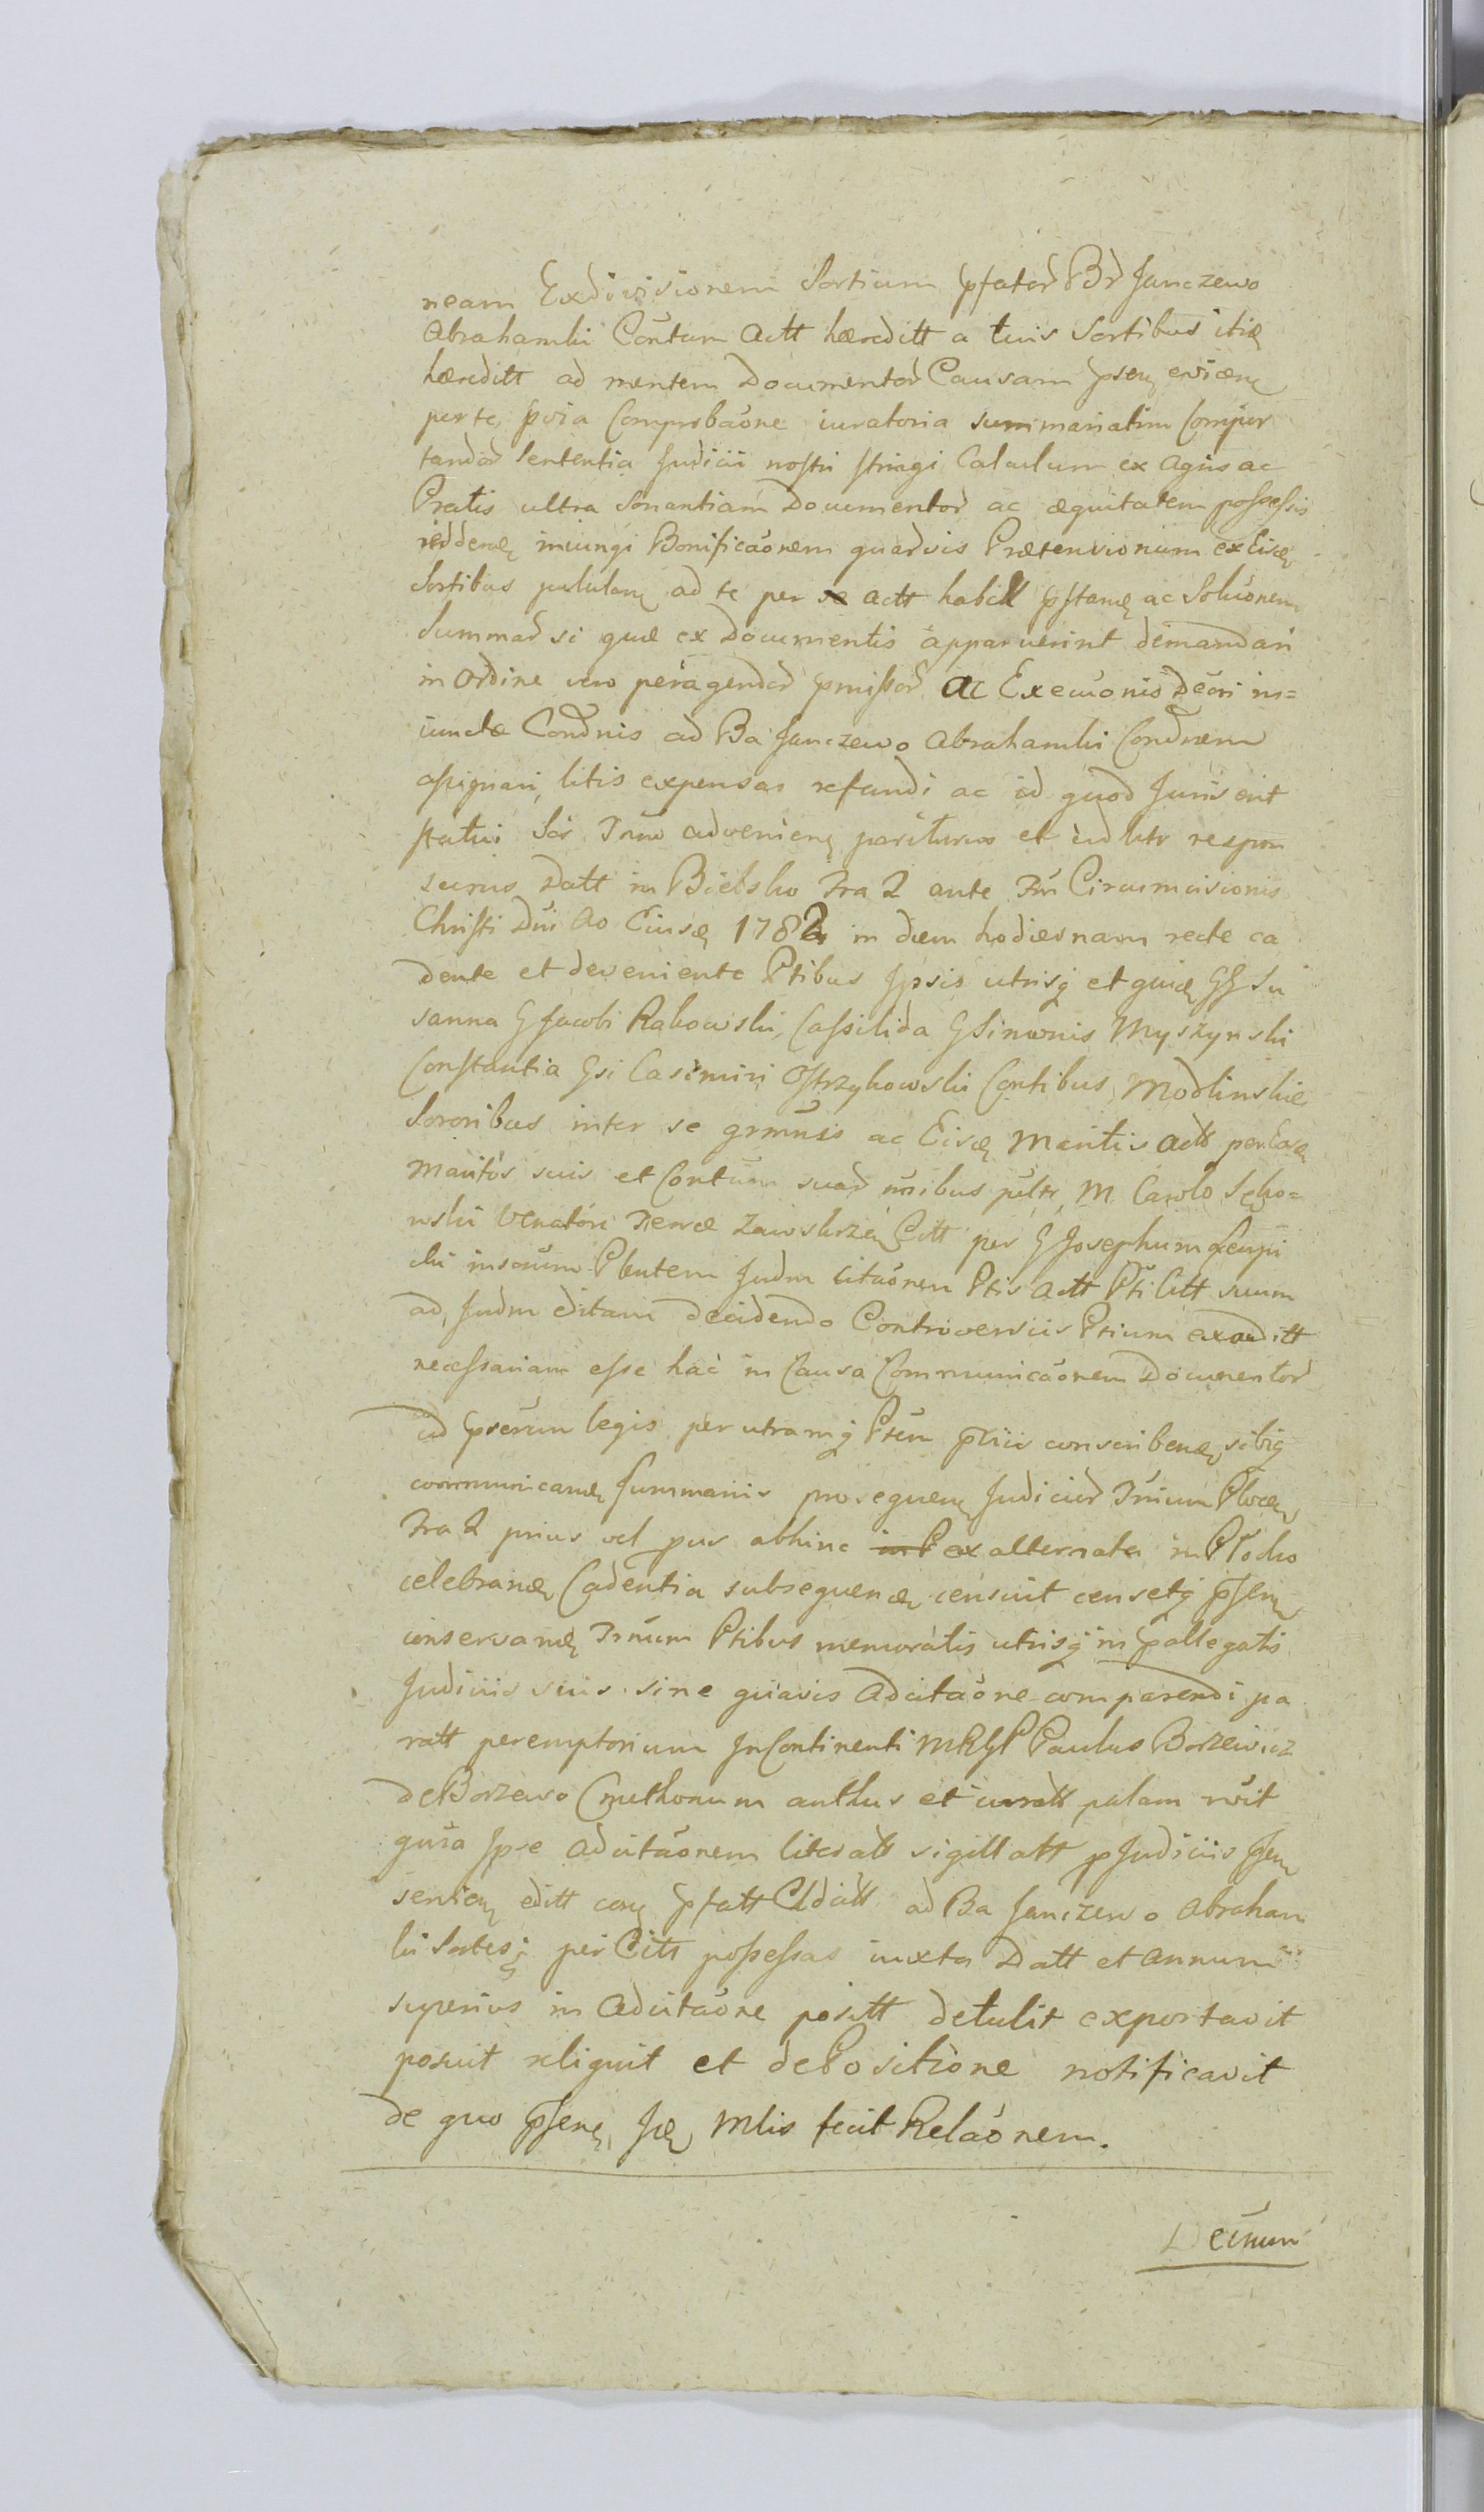 neam Exdivisionem Sortium pfator Br Janczewo
Abrahamki Contum Actt hæreditt a tuis Sortibus itiæ
hæreditt ad mentem Documentor Causam psen evicen
per te, pvia Comprobaõne iuratoria summariatim Compor
tandor Sententia Judicii nostri stringi Calculum ex Agris ac
Pratis ultra Sonantiam Documentor ac æquitatem possessis
reddend iniungi Bonificaõnem quarvis Prætensionum ex Eisd
Sortibus pululan ad te per se actt habitt pstand ac Soluõnem
Summar si quæ ex Documentis apparuerint demandari
in ordine vero peragendor pmissor ac Execuõnis Decri in=
iunctæ Condnis ad Ba Janczewo Abrahamki Condnem
assignari, litis expensas refundi ac id quod Juris erit
statui Sis Trno advenien pariturus et iudtr respon
surus Datt in Bielsko Fra 2 ante Fm Circumcisionis
Christi Dni Ao Eiusd 1782 in diem hodiernam recte ca
dente et deveniente Ptibus Ipsis utrisq et quid GG Su
sanna G Jacobi Rakowski, Cassilida G Simonis Myszynski
Constantia Gsi Casimiri Ostrzykowski Contibus, Modlinskie
Sororibus inter se grmnis ac Eisd Maritis actt per Eosd
Maritos suis et Contum suar nnibus pulte, M. Carolo Sępo=
wski Venatori Terræ Zawskrzen Citt per G Josephum
insonum Plentem Judm citaõnem Ptis Actt Pti Citt suum
ad, Judm editam decidendo Controversiis Ptium exauditt
necessariam esse hac in Causa Communicaõnem Documentor
ad pserum legis per utramq Ptem priis conscribend, sibiq
communicand Summariis prosequen Judicior Trium Plocen
Fra 2 prius vel pus abhinc ex alternata in Płocko
celebrand Cadentia subsequend censuit censetq psen
conservand Trnum Ptibus memoratis utrisq in pallegatis
Judiciis suis sine quavis Adcitaõne comparendi pa
ratt peremptorium In Continenti MRGP Paulus Borzewicz
de Borzewo Cmethonum anthus et iuratt palam rwit
quia Ipse Adcitaõnem literatt sigillatt p Judiciis psen
servien editt con pfatt Cldatt ad Ba Janczewo Abraham
ki Sortesq per Citt possessas iuxta Datt et Annum
superius in Adcitaõne positt detulit exportavit
posuit reliquit et de Positione notificavit
de quo psens, Jud Mlis fecit Relaõnem.
Decnum